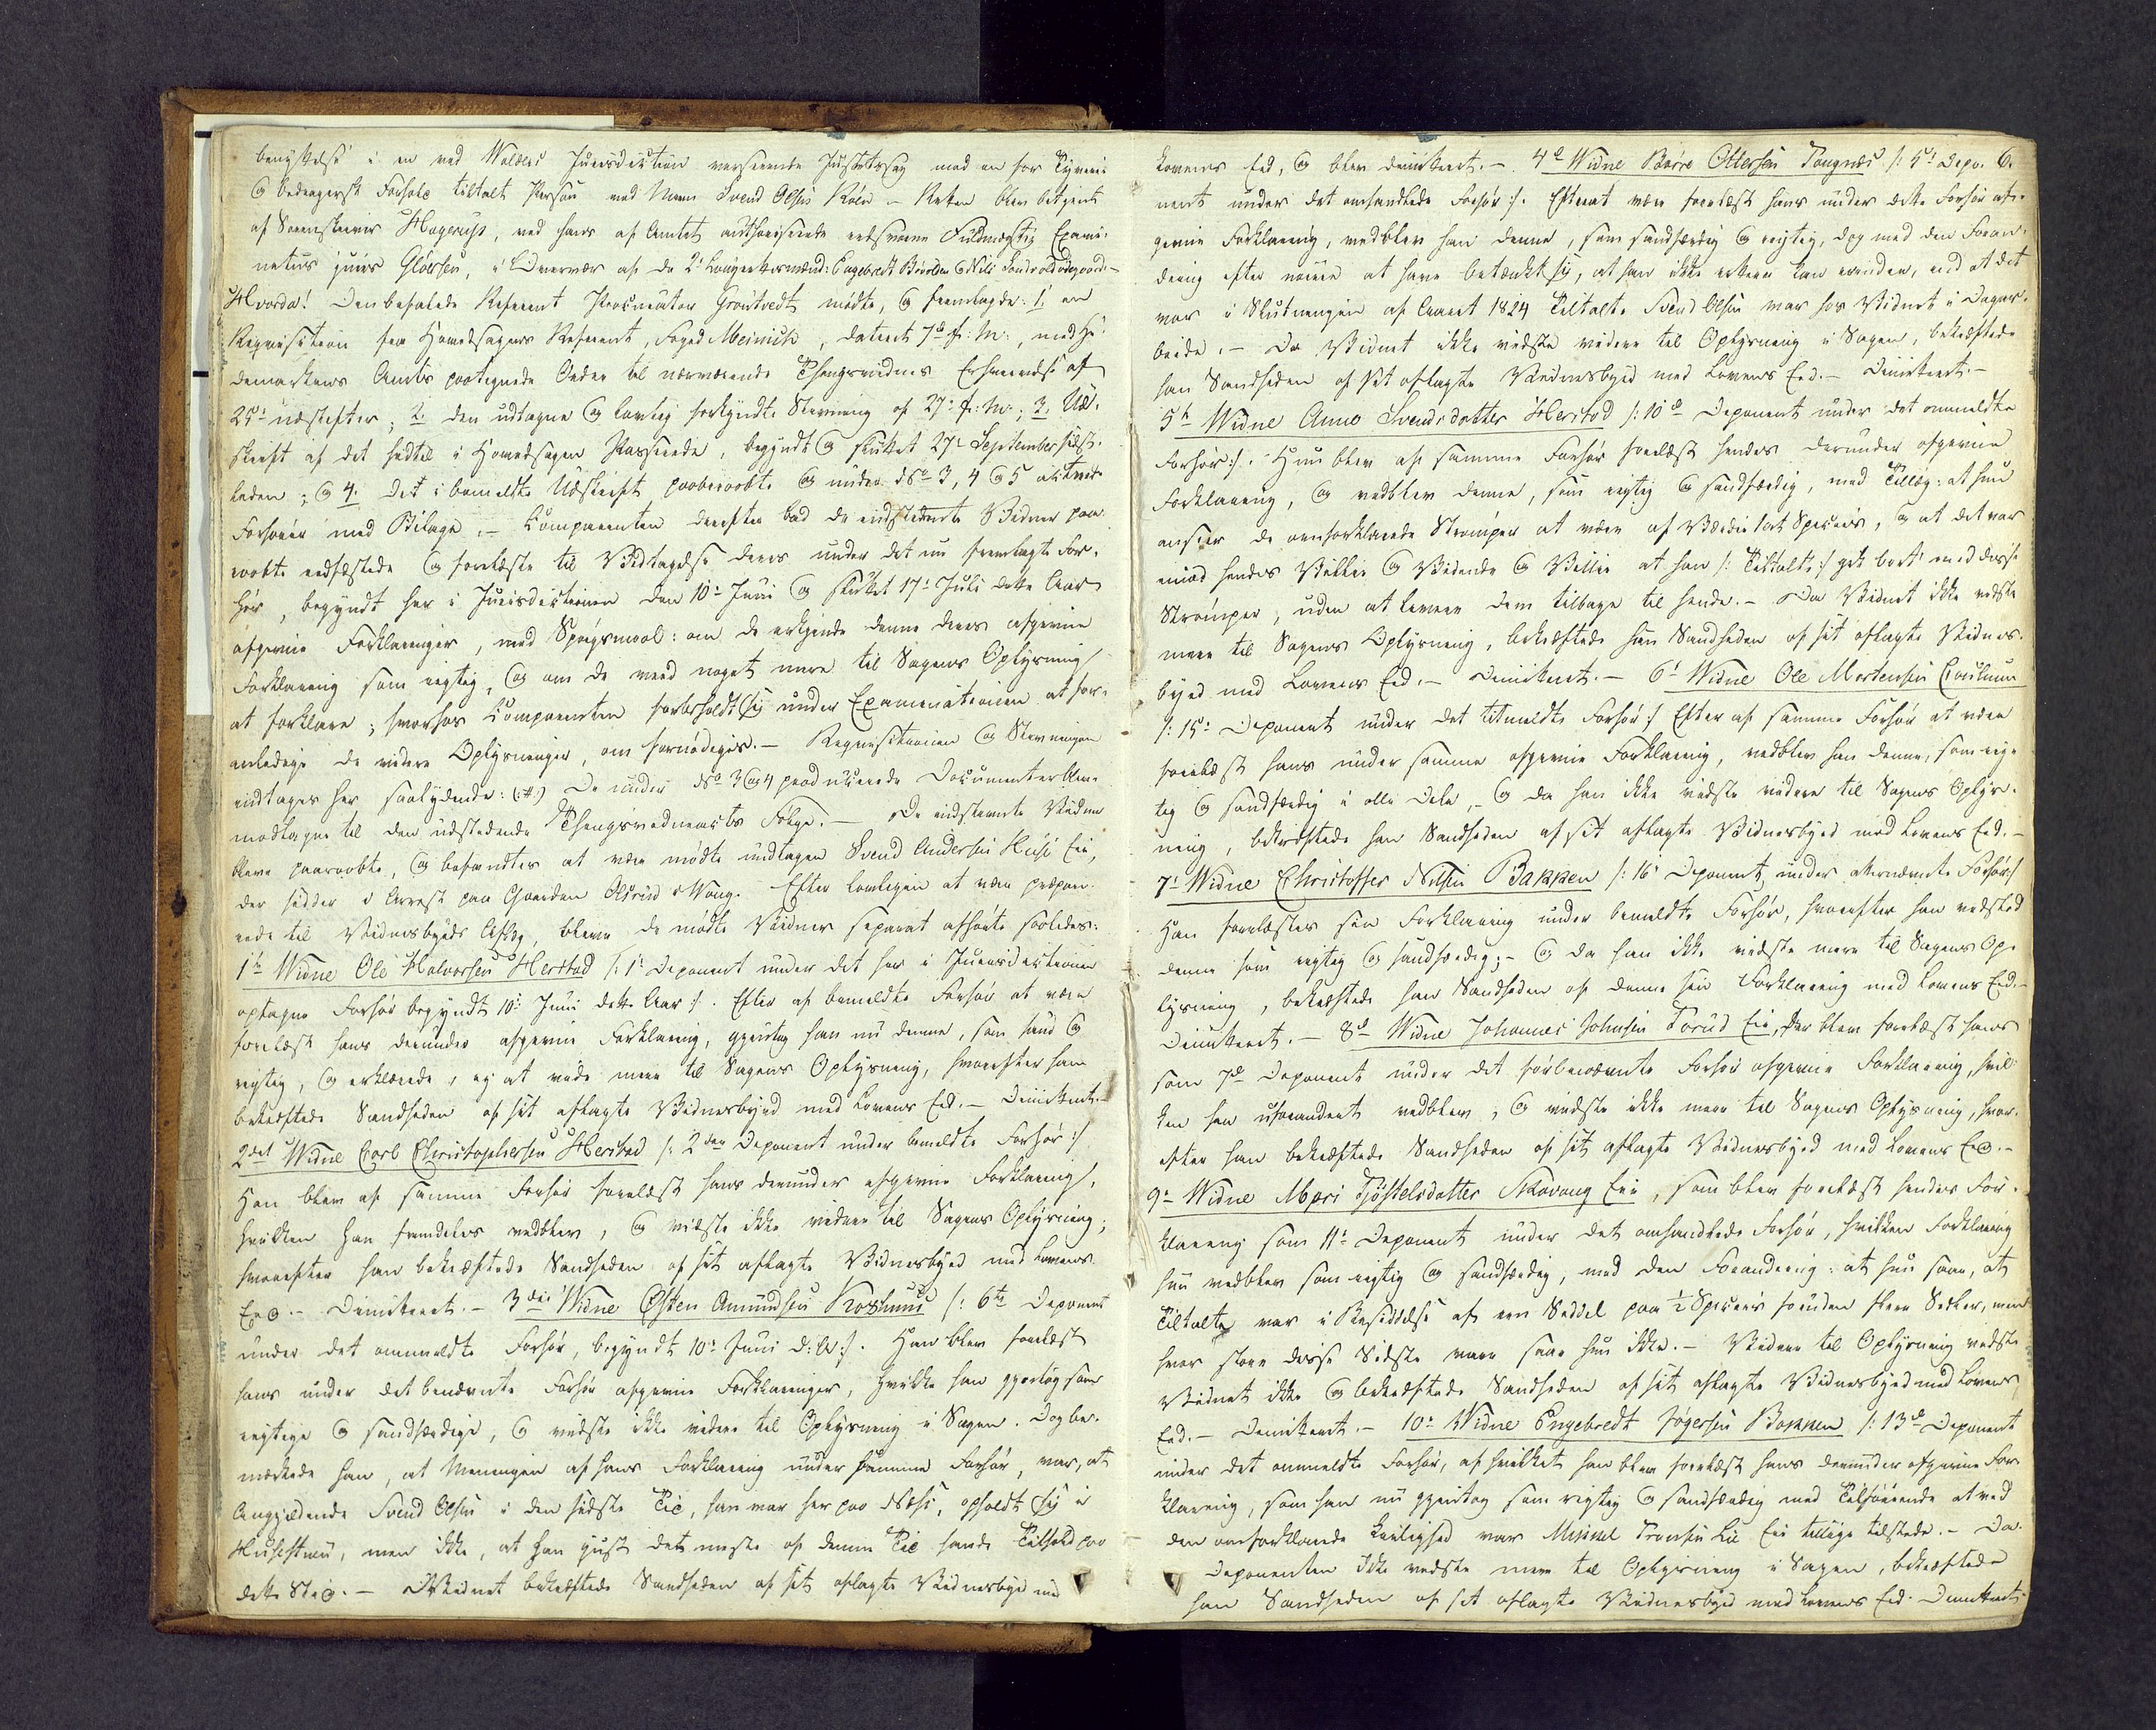 benyttelse i en ved Walders Jurisdiction verserende Justitssag mod en for Tyverie
og bedragersk Forhold tiltalt Person ved Navn Svend Olsen Røen – Retten blev betjent
af Sorenskriver Hagerup, ved hans af Amtet authoriserede eedsvorne Fuldmægtig Exami-
natus juris Gløersen, i Overvær af de 2de Laugrettesmænd: Engebredt og Nils
Hvorda! Den befalede Referent Procurator Grøntvedt mødte, og fremlagde: 1, en
Requisition fra Hovedsagens Referent, Foged Meinich, dateret 7de f: M:, med He-
demarkens Amts paategnede Ordre til nærværende Thingsvidnes Erhvervelse af
25de næstefter; 2. den udtagne og lovlig forkyndte Stevning af 27de f: M:; 3. Ud-
skrift af det hidtil i Hovedsagen Passerede, begyndt og sluttet 27de September sidst-
leden; og 4. det i bemeldte Udskrift paaberaabte og under No 3, 4 og 5
Forhører med Bilage. – Comparenten derefter bad de indstevnte Vidner paa-
raabte eedfæstede og forelæste til Vedtagelse deres under det nu fremlagte For-
hør, begyndt her i Jurisdictionen den 10de Juni og sluttet 17de Juli dette Aar
afgivne Forklaringer, med Spørgsmaal: om de erkjende denne deres afgivne
Forklaring som rigtig, og om de veed noget mere til Sagens Oplysning
at forklare; hvorhos Comparenten forbeholdt sig under Examinationen at for-
anledige de videre Oplysninger, om fornødiges. – Requisitionen og Stevningen
indtages her saalydende: (:#:) De under No 3 og 4 producerede Documenter blev
modtagne til den udstedende Thingsvidneacts Følge. – De indstevnte Vidner
bleve paaraabte, og befandtes at være mødte undtagen Svend Andersen Huse Eie,
der sidder i Arrest paa Gaarden Alsrud i Vang. Efter lovligen at være præpare-
rede til Vidnesbyrds Aflæg, bleve de mødte Vidner separat afhørte saaledes:
1te Widne Ole Halvorsen Herstad /: 1te Deponent under det her i Jurisdictionen
optagne Forhør begyndt 10de Juni dette Aar :/. Efter af bemeldte Forhør at være
forelæst hans derunder afgivne Forklaring, gjentog han nu denne, som sand og
rigtig, og erklærede, ej at vide mere til Sagens Oplysning, hvorefter han
bekræftede Sandheden af sit aflagte Vidnesbyrd med Lovens Eed. – Dimitteret. –
2det Widne Carl Christophersen Herstad /: 2den Deponent under bemeldte Forhør :/
Han blev af samme Forhør forelæst hans derunder afgivne Forklaring,
hvilken han fremdeles vedblev, og vidste ikke videre til Sagens Oplysning;
hvorefter han bekræftede Sandheden af sit aflagte Vidnesbyrd med Lovens
Eed. – Dimitteret. – 3die Widne Østen Amundsen Koshuus /: 6te Deponent
under det ommeldte Forhør, begyndt 10de Juni d: A: :/. Han blev forelæst
hans under det benævnte Forhør afgivne Forklaringer, hvilke han gjentog som
rigtige og sandfærdige, og vidste ikke videre til Oplysning i Sagen. Dog be-
mærkede han, at Meningen af hans Forklaring under samme Forhør, var, at
Angjældende Svend Olsen i den sidste Tid, han var her paa Næss, opholdt sig i
, men ikke, at han just det meste af denne Tid havde Tilhold paa
dette Sted. – Vidnet bekræftede Sandheden af sit aflagte Vidnesbyrd med
Lovens Eed, og blev dimitteret. – 4de Widne Børre Ottersen Tangnæs /: 5te Depo- 6.
nent under det omhandlede Forhør :/. Efterat være forelæst hans under dette Forhør af-
givne Forklaring, vedblev han denne, som sandfærdig og rigtig, dog med den Foran-
dring efter nøiere at have betænkt sig, at han ikke rettere kan erindre, end at det
var i Slutningen af Aaret 1824 Tiltalte Svend Olsen var hos Vidnet i Dagar-
beide. – Da Vidnet ikke vidste videre til Oplysning i Sagen, bekræftede
han Sandheden af sit aflagte Vidnesbyrd med Lovens Eed. – Dimitteret. –
5te Widne Anne Svendsdatter Herstad /: 10de Deponent under det ommeldte
Forhør :/. Hun blev af samme Forhør forelæst hendes derunder afgivne
Forklaring, og vedblev denne, som rigtig og sandfærdig, med Tillæg: at hun
ansær de omforklarede Strømper at være af Værdie 1 ort Species, og at det var
imod hendes Vidende og Villie at han /: Tiltalte :/ gik bort med disse
Strømper, uden at levere dem tilbage til hende. – Da Vidnet ikke vidste
mere til Sagens Oplysning, bekræftede hun Sandheden af sit aflagte Vidnes-
byrd med Lovens Eed. – Dimitteret. – 6te Widne Ole Mortensen
/: 15de Deponent under det titmeldte Forhør :/ Efter af samme Forhør at være
forelæst hans under samme afgivne Forklaring, vedblev han denne, som rig-
tig og sandfærdig i alle Dele, – og da han ikke vidste videre til Sagens Oplys-
ning, bekræftede han Sandheden af sit aflagte Vidnesbyrd med Lovens Eed. –
7de Widne Christoffer Nilsen Bakken /: 16de Deponent under oftenævnte Forhør :/
Han forelæstes sin Forklaring under bemeldte Forhør, hvorefter han vedstod
denne som rigtig og sandfærdig; – og da han ikke vidste mere til Sagens Op-
lysning, bekræftede han Sandheden af denne sin Forklaring med Lovens Eed. –
Dimitteret. – 8de Widne Johannes Johnsen Torud Eie, der blev forelæst hans
som 7de Deponent under det førbenævnte Forhør afgivne Forklaring, hvil-
ken han uforandret vedblev, og vidste ikke mere til Sagens Oplysning, hvor-
efter han bekræftede Sandheden af sit aflagte Vidnesbyrd med Lovens Eed. –
9de Widne Mari Tjøstelsdatter Skavang Eie, som blev forelæst hendes For-
klaring som 11te Deponent under det omhandlede Forhør, hvilken Forklaring
hun vedblev som rigtig og sandfærdig, med den Forandring: at hun saae, at
Tiltalte var i Besiddelse af een Seddel paa 1/2 Species foruden flere Sedler, men
hvor store disse Sidste vare saae hun ikke. – Videre til Oplysning vidste
Vidnet ikke og bekræftede Sandheden af sit aflagte Vidnesbyrd med Lovens
Eed. – Dimitteret. – 10de Widne Engebredt Bakken /: 13de Deponent
under det ommeldte Forhør, af hvilket han blev forelæst hans derunder afgivne For-
klaring, som han nu gjentog som rigtig og sandfærdig med Tilføiende at ved
den omforklarede Leilighed var Mikkel Lie Eie tillige tilstede. – Da
Deponenten ikke vidste mere til Oplysning i Sagen, bekræftede
han Sandheden af sit aflagte Vidnesbyrd med Lovens Eed. Dimitteret